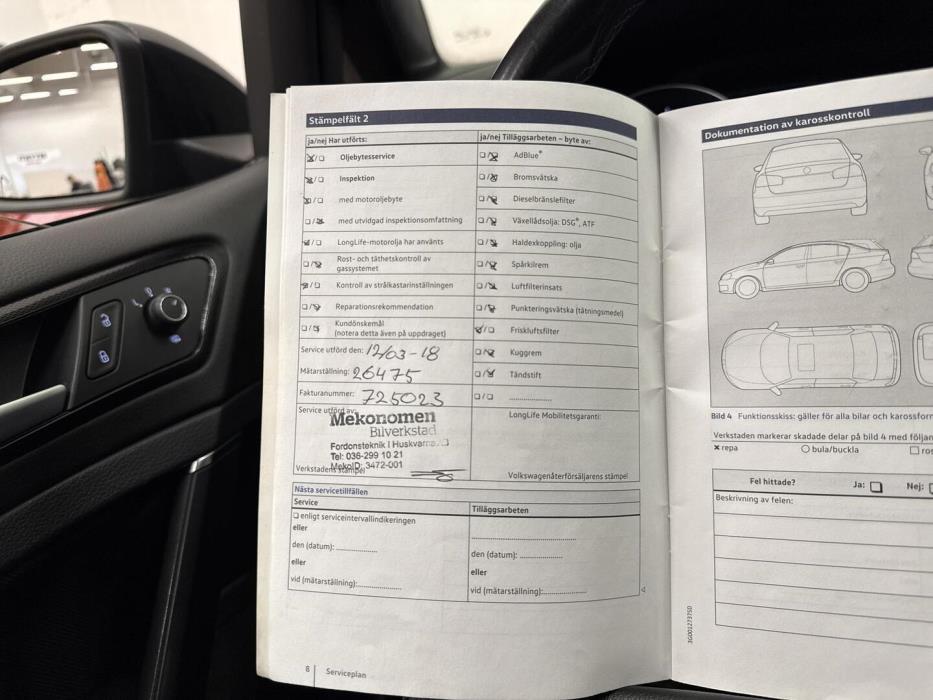 Stämpelfält 2
ja/nej Har utförts:
Oljebytesservice
Inspektion
med motoroljebyte
med utvidgad inspektionsomfattning
LongLife-motorolja har använts
Rost- och täthetskontroll av
gassystemet
Kontroll av strålkastarinställningen
Reparationsrekommendation
Kundönskemål
(notera detta även på uppdraget)
Service utförd den: 12/03-18
Mätarställning: 26475
Fakturanummer: 725023
Service utförd av:
Mekonomen
Bilverkstad
Fordonsteknik I Huskvarna
Tel: 036-299 10 21
MekoID: 3472-001
Verkstadens stämpel
ja/nej Tilläggsarbeten – byte av:
AdBlue®
Bromsvätska
Dieselbränslefilter
Växellådsolja: DSG®, ATF
Haldexkoppling: olja
Spårkilrem
Luftfilterinsats
Punkteringsvätska (tätningsmedel)
Friskluftsfilter
Kuggrem
Tändstift
LongLife Mobilitetsgaranti:
Volkswagenåterförsäljarens stämpel
Nästa servicetillfällen
Service
enligt serviceintervallindikeringen
eller
den (datum):
eller
vid (mätarställning):
Tilläggsarbeten
den (datum):
eller
vid (mätarställning):
Serviceplan
Dokumentation av karosskontroll
Bild 4 Funktionsskiss: gäller för alla bilar och karossfor
Verkstaden markerar skadade delar på bild 4 med följan
× repa
bula/buckla
ros
Fel hittade?
Ja:
Nej:
Beskrivning av felen: